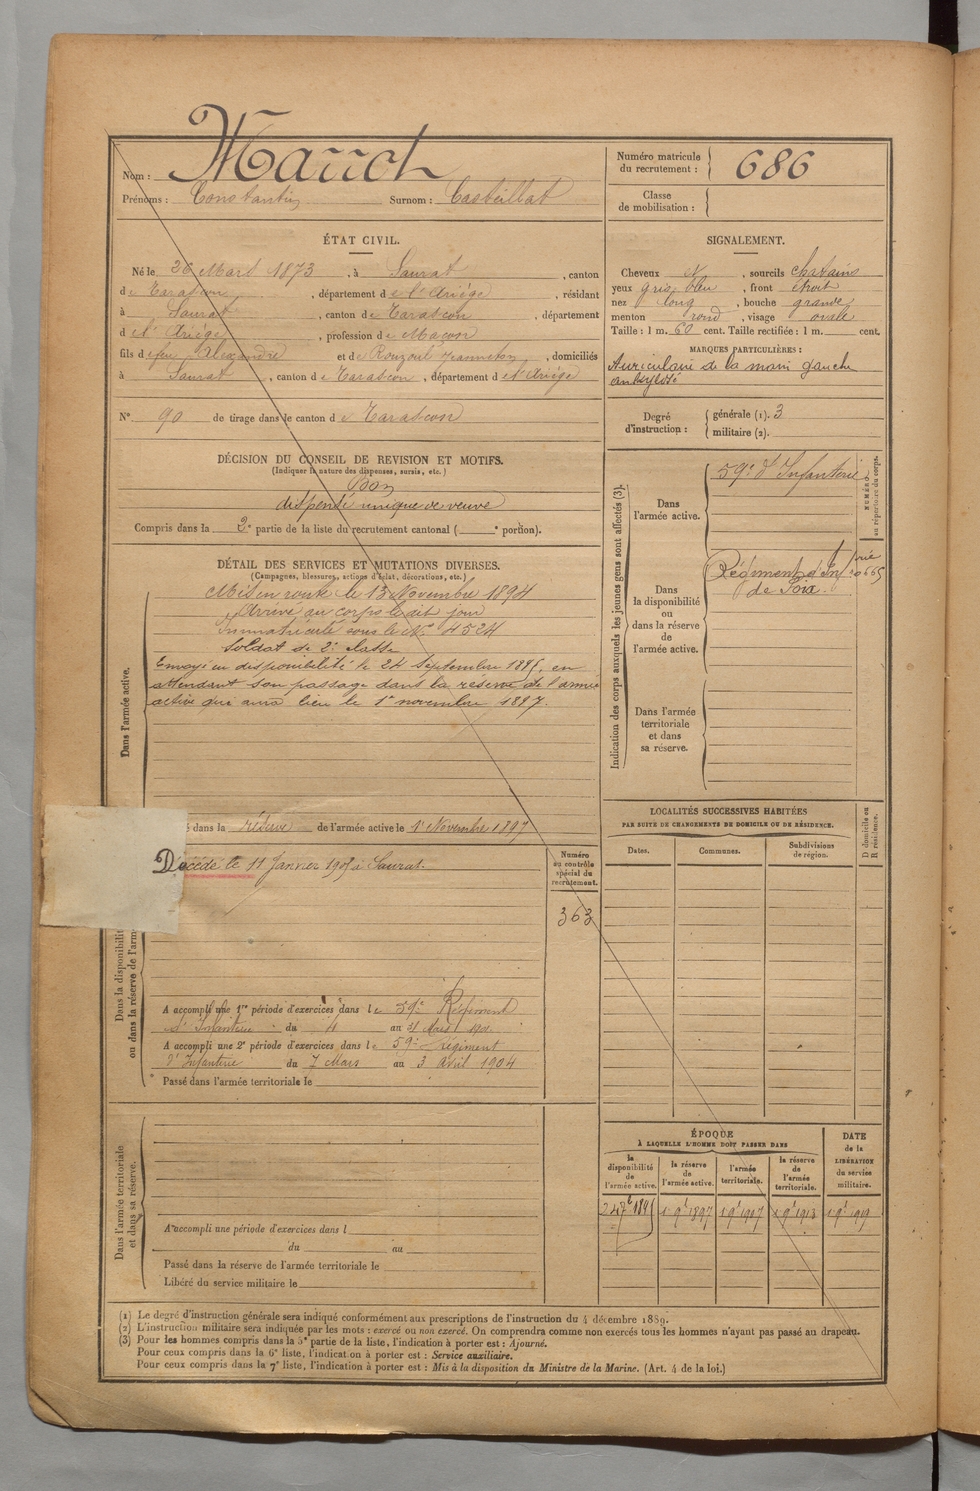 Nom : Marrot
Prénoms : Constantin Surnom : Casteillat
Numéro matricule du recrutement : 686
Classe de mobilisation :
ÉTAT CIVIL.
Né le 26 Mars 1873, à Saurat, canton
de Tarascon, département de l'Ariège, résidant
à Saurat, canton de Tarascon, département
de l'Ariège, profession de Maçon
fils de feu Alexandre et de Rouzoul Jeanneton, domiciliés
à Saurat, canton de Tarascon, département de l'Ariège
N° 90 de tirage dans le canton de Tarascon
SIGNALEMENT.
Cheveux et, sourcils chatains
yeux gris bleu, front étroit
nez long, bouche grande
menton rond, visage ovale
Taille : 1 m. 60 cent. Taille rectifiée : 1 m. cent.
MARQUES PARTICULIÈRES :
Auriculaire de la main gauche
ankylosé
Degré d'instruction : générale (1). 3
militaire (2).
DÉCISION DU CONSEIL DE REVISION ET MOTIFS.
(Indiquer la nature des dispenses, sursis, etc.)
Bon
dispensé unique de veuve
Compris dans la 2e partie de la liste du recrutement cantonal ( e portion).
DÉTAIL DES SERVICES ET MUTATIONS DIVERSES.
(Campagnes, blessures, actions d'éclat, décorations, etc.)
Dans l'armée active.
Mis en route le 13 Novembre 1894
Arrivé au corps le dit jour
immatriculé sous le No 4524
Soldat de 2e classe
Envoyé en disponibilité le 24 Septembre 1895, en
attendant son passage dans la réserve de l'armée
active qui aura lieu le 1er novembre 1897.
é dans la réserve de l'armée active le 1er Novembre 1897
Dans la disponibilité
ou dans la réserve de l'arm
Décédé le 11 Janvier 190 à Saurat
Numéro au contrôle spécial du recrutement.
363
A accompli une 1re période d'exercices dans le 59e Régiment
d'Infanterie du 4 au 31 Mars 1901
A accompli une 2e période d'exercices dans le 59e Régiment
d'Infanterie du 7 Mars au 3 Avril 1904
Passé dans l'armée territoriale le
Dans l'armée territoriale
et dans sa réserve.
A accompli une période d'exercices dans l
du au
Passé dans la réserve de l'armée territoriale le
Libéré du service militaire le
Indication des corps auxquels les jeunes gens sont affectés (3).
NUMÉRO au répertoire du corps.
Dans l'armée active.
59e d'Infanterie
Dans la disponibilité ou dans la réserve de l'armée active.
Régiment d'Inf rie
de Foix.
Dans l'armée territoriale et dans sa réserve.
LOCALITÉS SUCCESSIVES HABITÉES
PAR SUITE DE CHANGEMENTS DE DOMICILE OU DE RÉSIDENCE.
D domicile ou R résidence.
Dates. Communes. Subdivisions de région.
ÉPOQUE
À LAQUELLE L'HOMME DOIT PASSER DANS
DATE de la LIBÉRATION du service militaire.
la disponibilité de l'armée active.
la réserve de l'armée active.
l'armée territoriale.
la réserve de l'armée territoriale.
24 7b 1895 1 9b 1897 1 9b 1907 1 9b 1913 1 9b 1919
(1) Le degré d'instruction générale sera indiqué conformément aux prescriptions de l'instruction du 4 décembre 1889.
(2) L'instruction militaire sera indiquée par les mots : exercé ou non exercé. On comprendra comme non exercés tous les hommes n'ayant pas passé au drapeau.
(3) Pour les hommes compris dans la 5e partie de la liste, l'indication à porter est : Ajourné.
Pour ceux compris dans la 6e liste, l'indication à porter est : Service auxiliaire.
Pour ceux compris dans la 7e liste, l'indication à porter est : Mis à la disposition du Ministre de la Marine. (Art. 4 de la loi.)